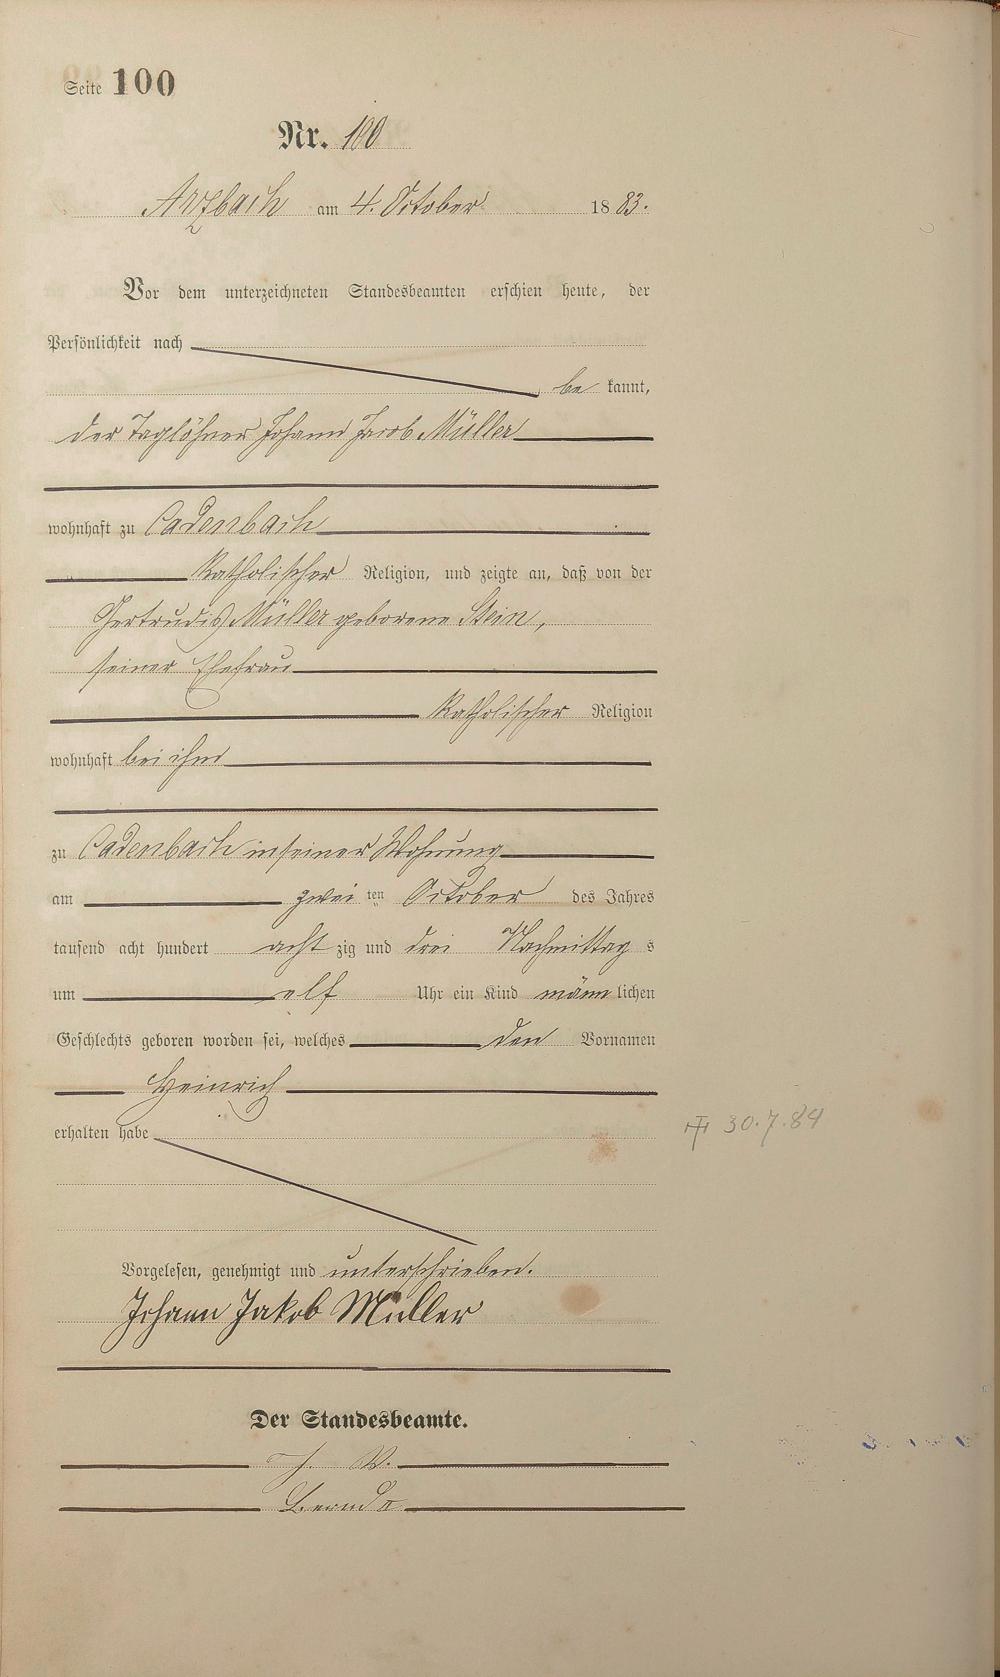 Seite 100
Nr. 100
Arzbach am 4. October 1883.
Vor dem unterzeichneten Standesbeamten erschien heute, der
Persönlichkeit nach
be kannt,
der Taglöhner Johann Jacob Müller
wohnhaft zu Cadenbach
katholischer Religion, und zeigte an, daß von der
Gertrudis Müller geborene Stein,
seiner Ehefrau
katholischer Religion
wohnhaft bei ihm
zu Cadenbach in seiner Wohnung
am zwei ten October des Jahres
tausend acht hundert acht zig und drei Nachmittag s
um elf Uhr ein Kind männ lichen
Geschlechts geboren worden sei, welches den Vornamen
Heinrich
erhalten habe
30.7.84
Vorgelesen, genehmigt und unterschrieben.
Johann Jakob Müller
Der Standesbeamte.